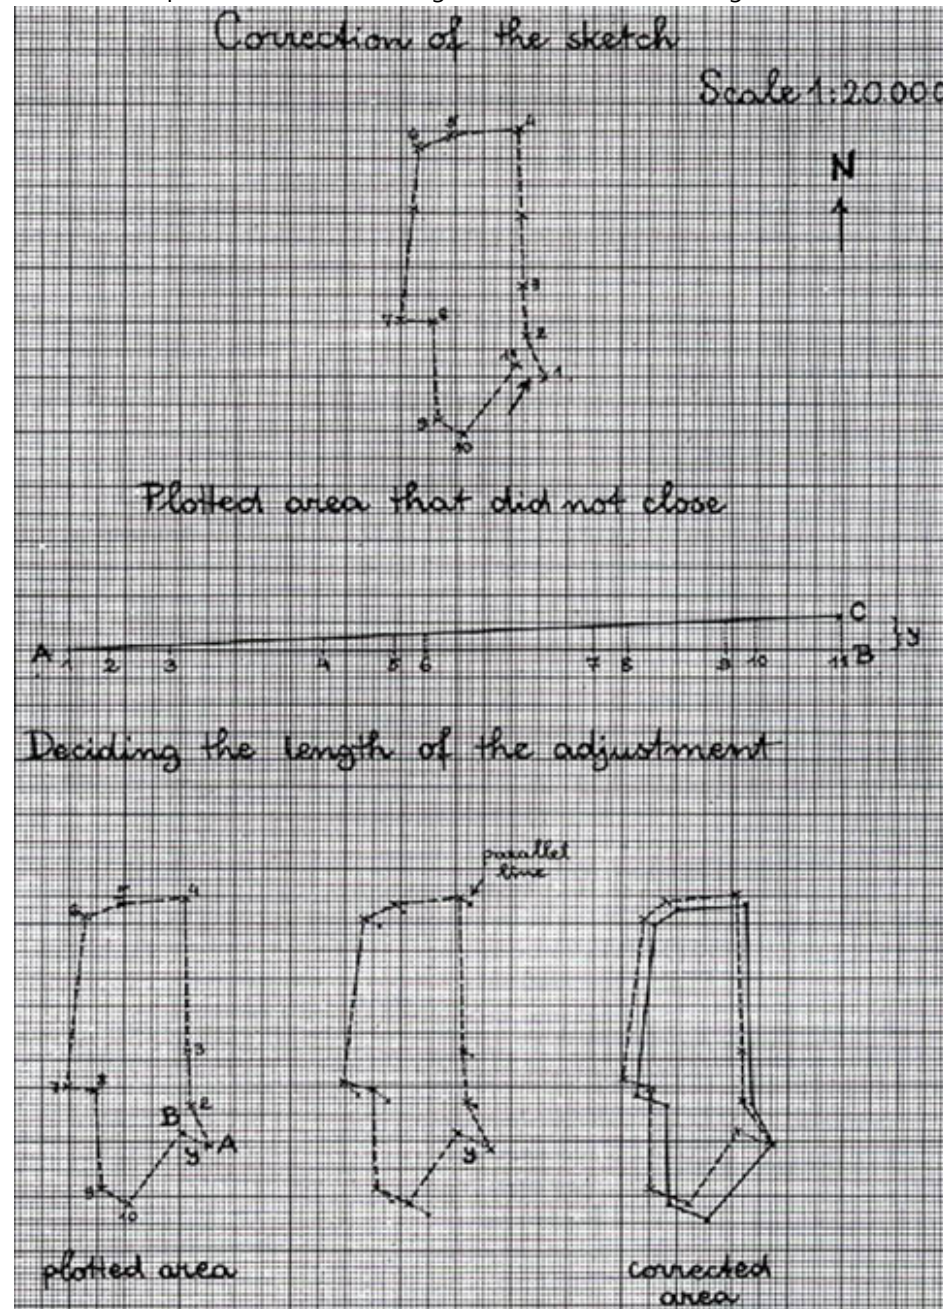 Correction of the sketch
Scale 1:20000
N
6 5 4
3
7 8
2
11
1
9
10
Plotted area that did not close
A 1 2 3 4 5 6 7 8 9 10 11 B C } y
Deciding the length of the adjustment
parallel
line
6 5 4
3
7 8
2
B
y A
9
10
y
plotted area
corrected
area